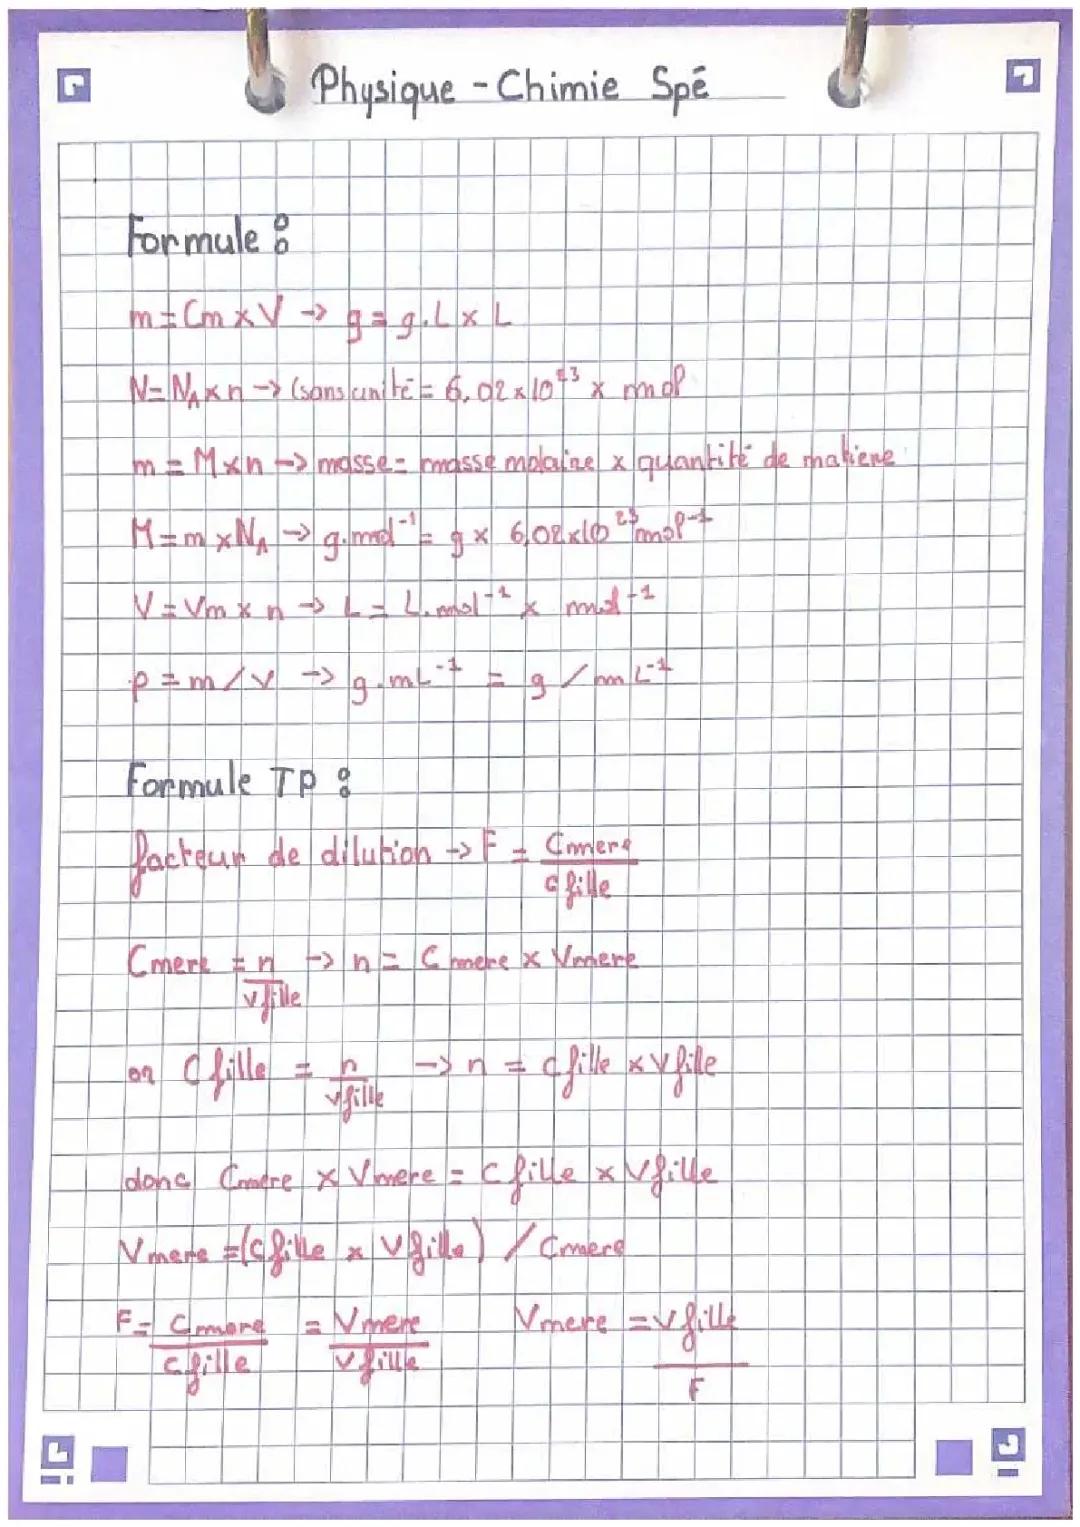 Physique - Chimie Spé
Formule :
m = Cm x V → g = g.L x L
N = N_A x n → (sans unité = 6,02 x 10²³ x mol
m = M x n → masse = masse molaire x quantité de matiere
M = m x N_A → g.mol⁻¹ = g x 6,02x10²³ mol⁻¹
V = Vm x n → L = L.mol⁻¹ x mol⁻¹
ρ = m / v → g.mL⁻¹ = g / mL⁻¹
Formule TP :
facteur de dilution → F = Cmere / C fille
Cmere = n / v fille → n = C mere x Vmere
or C fille = n / v fille → n = c fille x V fille
donc Cmère x Vmere = C fille x V fille
V mere = (C fille x V fille) / Cmere
F = Cmere / c fille = Vmere / v fille Vmere = v fille / F